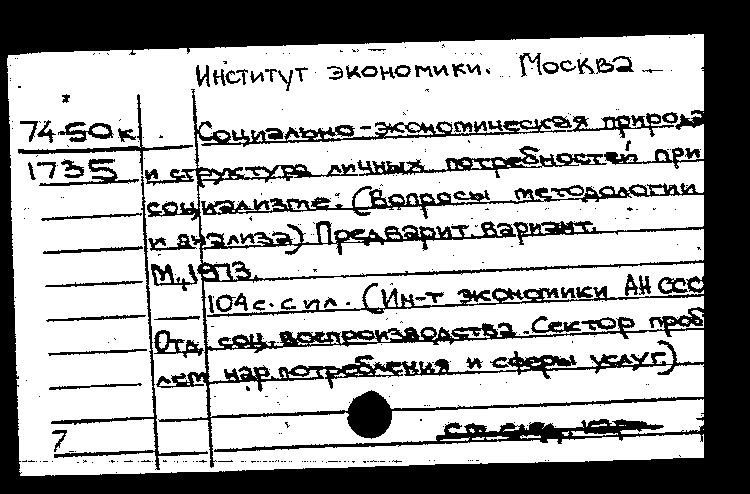 Институт экономики. Москва
74-50к
1735
Социально-экономическая природа
и структура личных потребностей при
социализме. (Вопросы методологии
и анализа) Предварит. вариант.
М., 1973.
104 с. с ил. (Ин-т экономики АН СССР
Отд. соц. воспроизводства. Сектор проб
лем нар. потребления и сферы услуг.)
7
см. след. кар.